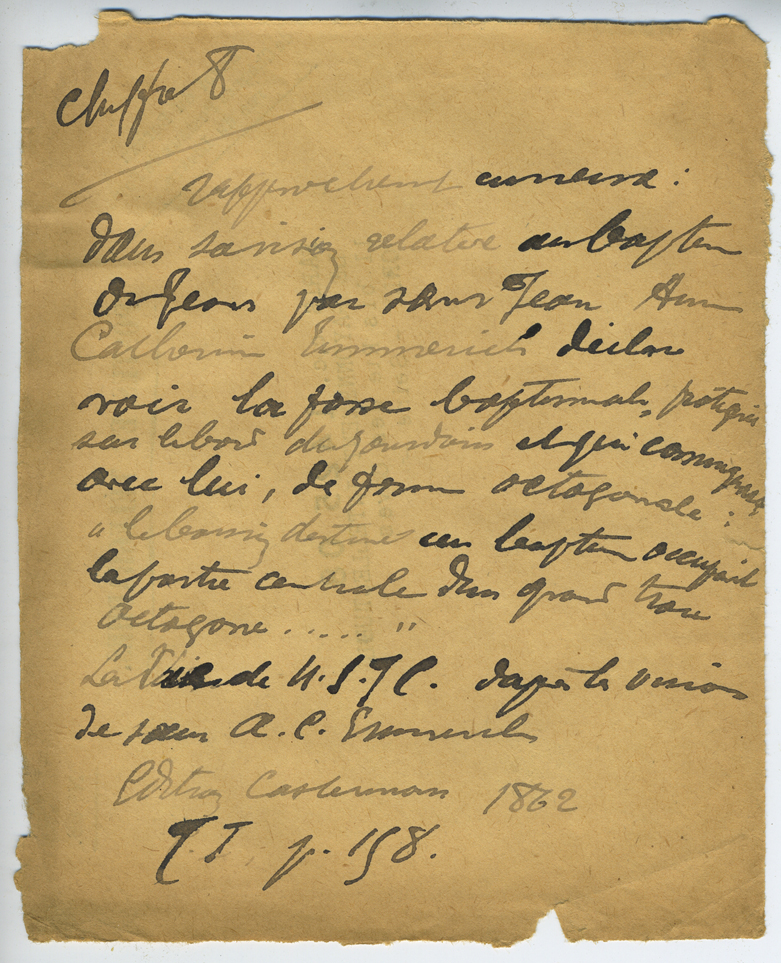 chiffre 8
rapprochement curieux :
dans sa vision relative au baptême
de Jésus par saint Jean Anne
Catherine Emmerich déclare
voir la fosse baptismale, protégée
sur le bord du Jourdain et qui communique
avec lui, de forme octogonale :
" le bassin destiné au baptême occupait
la partie centrale d'un grand trou
octogone ..... "
La Vie de N.S.J.C. d'après les visions
de sœur A. C. Emmerich
Edition Casterman 1862
T I p. 158.